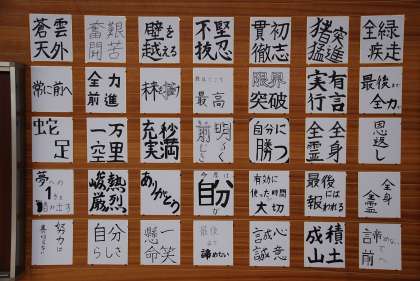 蒼雲
天外
艱苦
奮闘
壁を
越える
堅忍
不抜
初志
貫徹
猪突
猛進
全緑
疾走
常に前へ
全力
前進
最高
限界
突破
有言
実行
最後まで
全力
蛇足
万里
一空
充実
明るく
自分に
勝つ
全身
全霊
恩返し
夢への
1歩を
踏み出す
熱烈
峻厳
ありがとう
自分が
有効に
使った時間
大切
最後
には
報われる
全身
全霊
努力は
裏切らない
自分
らしさ
一笑
懸命
最後まで
諦めない
誠心
誠意
積土
成山
諦めないで
前へ